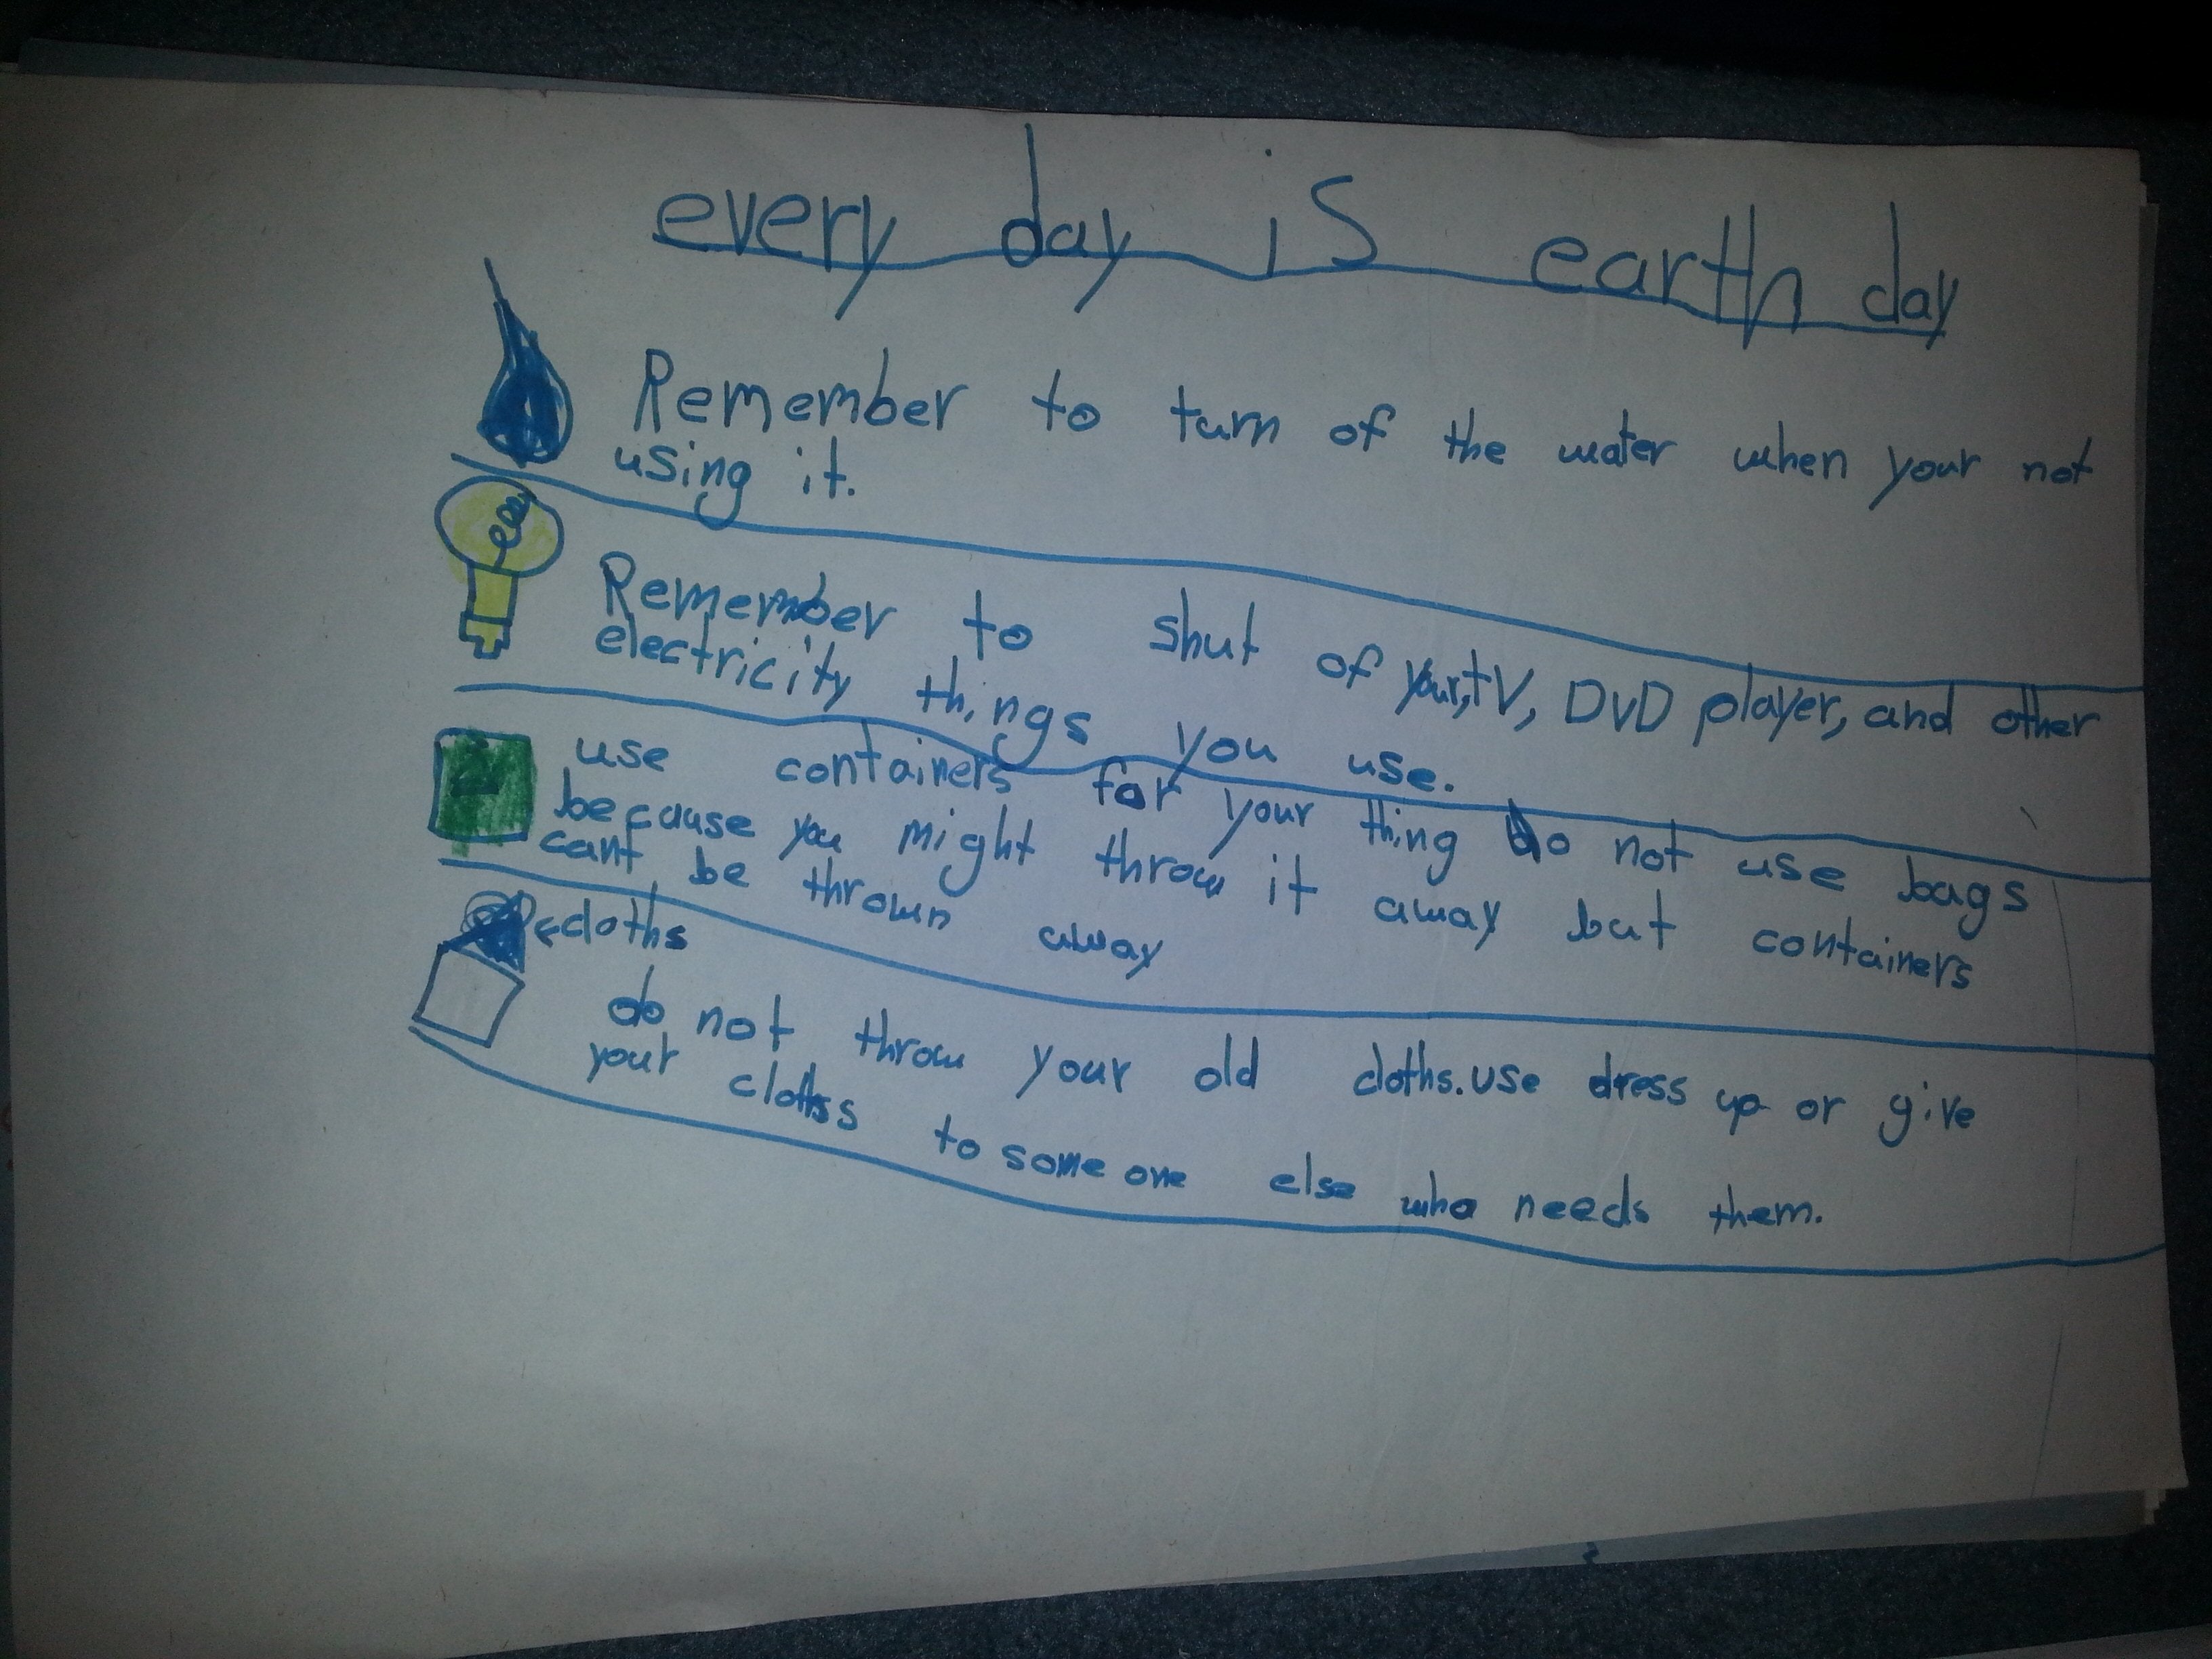 every day is earth day
Remember to turn of the water when your not
using it.
Remember to shut of your, tV, DVD player, and other
electricity things you use.
use containers for your thing do not use bags
because you might throw it away but containers
cant be thrown away
cloths
do not throw your old cloths. use dress up or give
your cloths to some one else who needs them.